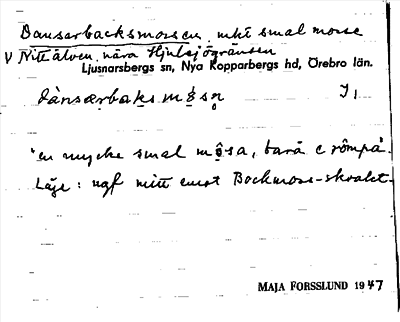 Dansarbacksmossen, mkt smal mosse
V Nittälven, nära Hjulsjögränsen
Ljusnarsbergs sn, Nya Kopparbergs hd, Örebro län.
dànsærbaks mǫ̀sn̥ J1
"en mycke smal mǫsa, bara e rômpa".
Läge: ngf mitt emot Bockmoss-skvalet.
MAJA FORSSLUND 1947